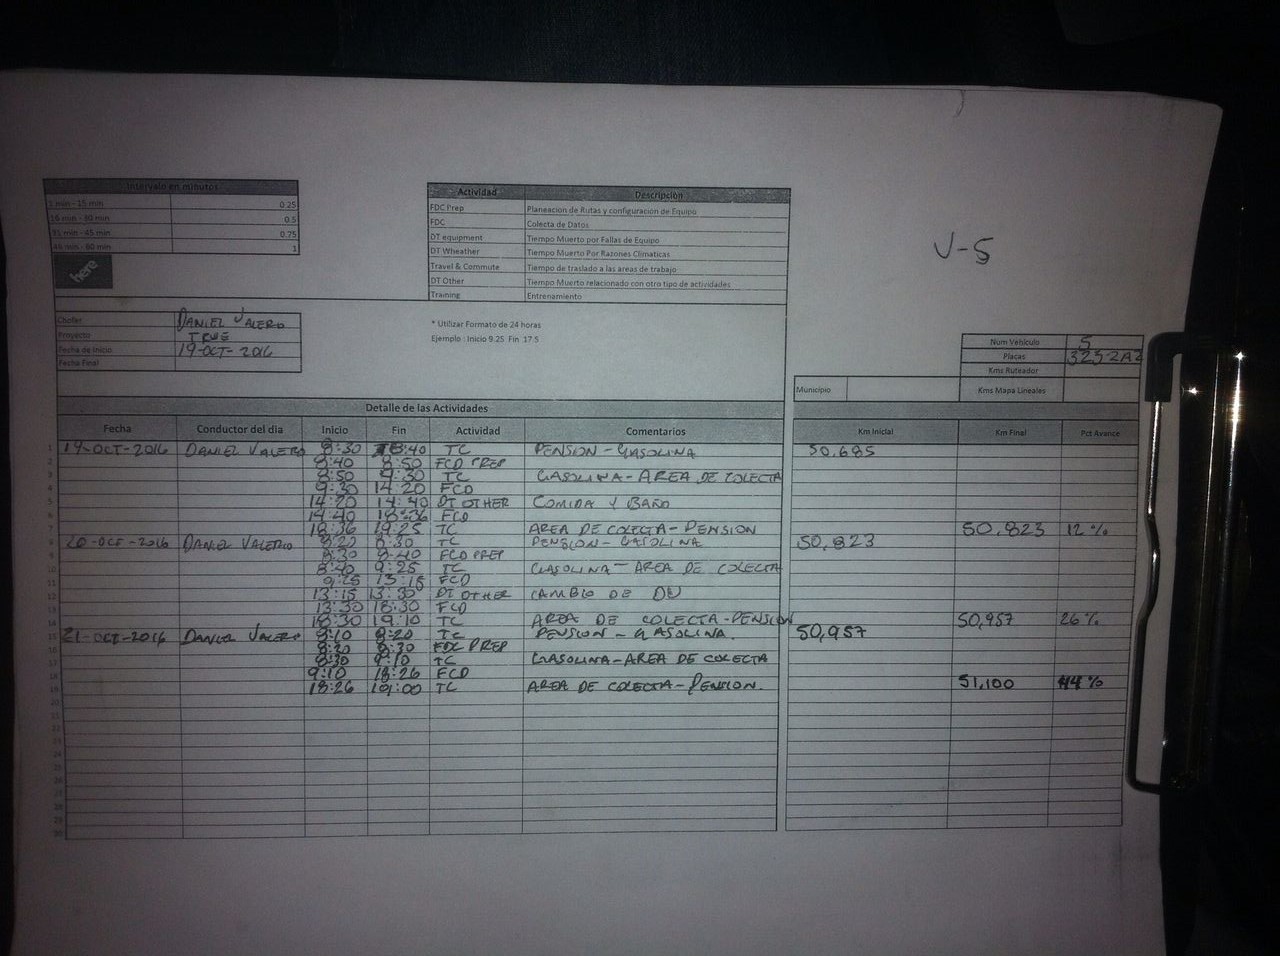 Intervalo en minutos
1 min - 15 min 0.25
16 min - 30 min 0.5
31 min - 45 min 0.75
46 min - 60 min 1
here
Actividad Descripción
FDC Prep Planeacion de Rutas y configuracion de Equipo
FDC Colecta de Datos
DT equipment Tiempo Muerto por Fallas de Equipo
DT Wheather Tiempo Muerto Por Razones Climaticas
Travel & Commute Tiempo de traslado a las areas de trabajo
DT Other Tiempo Muerto relacionado con otro tipo de actividades
Training Entrenamiento
V-5
Chofer DANIEL VALERO
Proyecto TRUE
Fecha de Inicio 19-OCT-2016
Fecha Final
* Utilizar Formato de 24 horas
Ejemplo : Inicio 9.25 Fin 17.5
Num Vehículo 5
Placas
Kms Ruteador
Municipio Kms Mapa Lineales
Detalle de las Actividades
Fecha Conductor del dia Inicio Fin Actividad Comentarios Km Inicial Km Final Pct Avance
1 19-OCT-2016 DANIEL VALERO 8:30 8:40 TC PENSION-GASOLINA 50,685
2 8:40 8:50 FCD PREP
3 8:50 9:30 TC GASOLINA-AREA DE COLECTA
4 9:30 14:20 FCD
5 14:20 14:40 DT OTHER COMIDA Y BAÑO
6 14:40 18:36 FCD
7 18:36 19:25 TC AREA DE COLECTA-PENSION 50,823 12%
8 20-OCT-2016 DANIEL VALERO 8:20 8:30 TC PENSION-GASOLINA 50,823
9 8:30 8:40 FCD PREP
10 8:40 9:25 TC GASOLINA-AREA DE COLECTA
11 9:25 13:15 FCD
12 13:15 13:30 DT OTHER CAMBIO DE DU
13 13:30 18:30 FCD
14 18:30 19:10 TC AREA DE COLECTA-PENSION 50,957 26%
15 21-OCT-2016 DANIEL VALERO 8:10 8:20 TC PENSION-GASOLINA. 50,957
16 8:20 8:30 FDC PREP
17 8:30 9:10 TC GASOLINA-AREA DE COLECTA
18 9:10 18:26 FCD
19 18:26 19:00 TC AREA DE COLECTA-PENSION. 51,100 44%
20
21
22
23
24
25
26
27
28
29
30